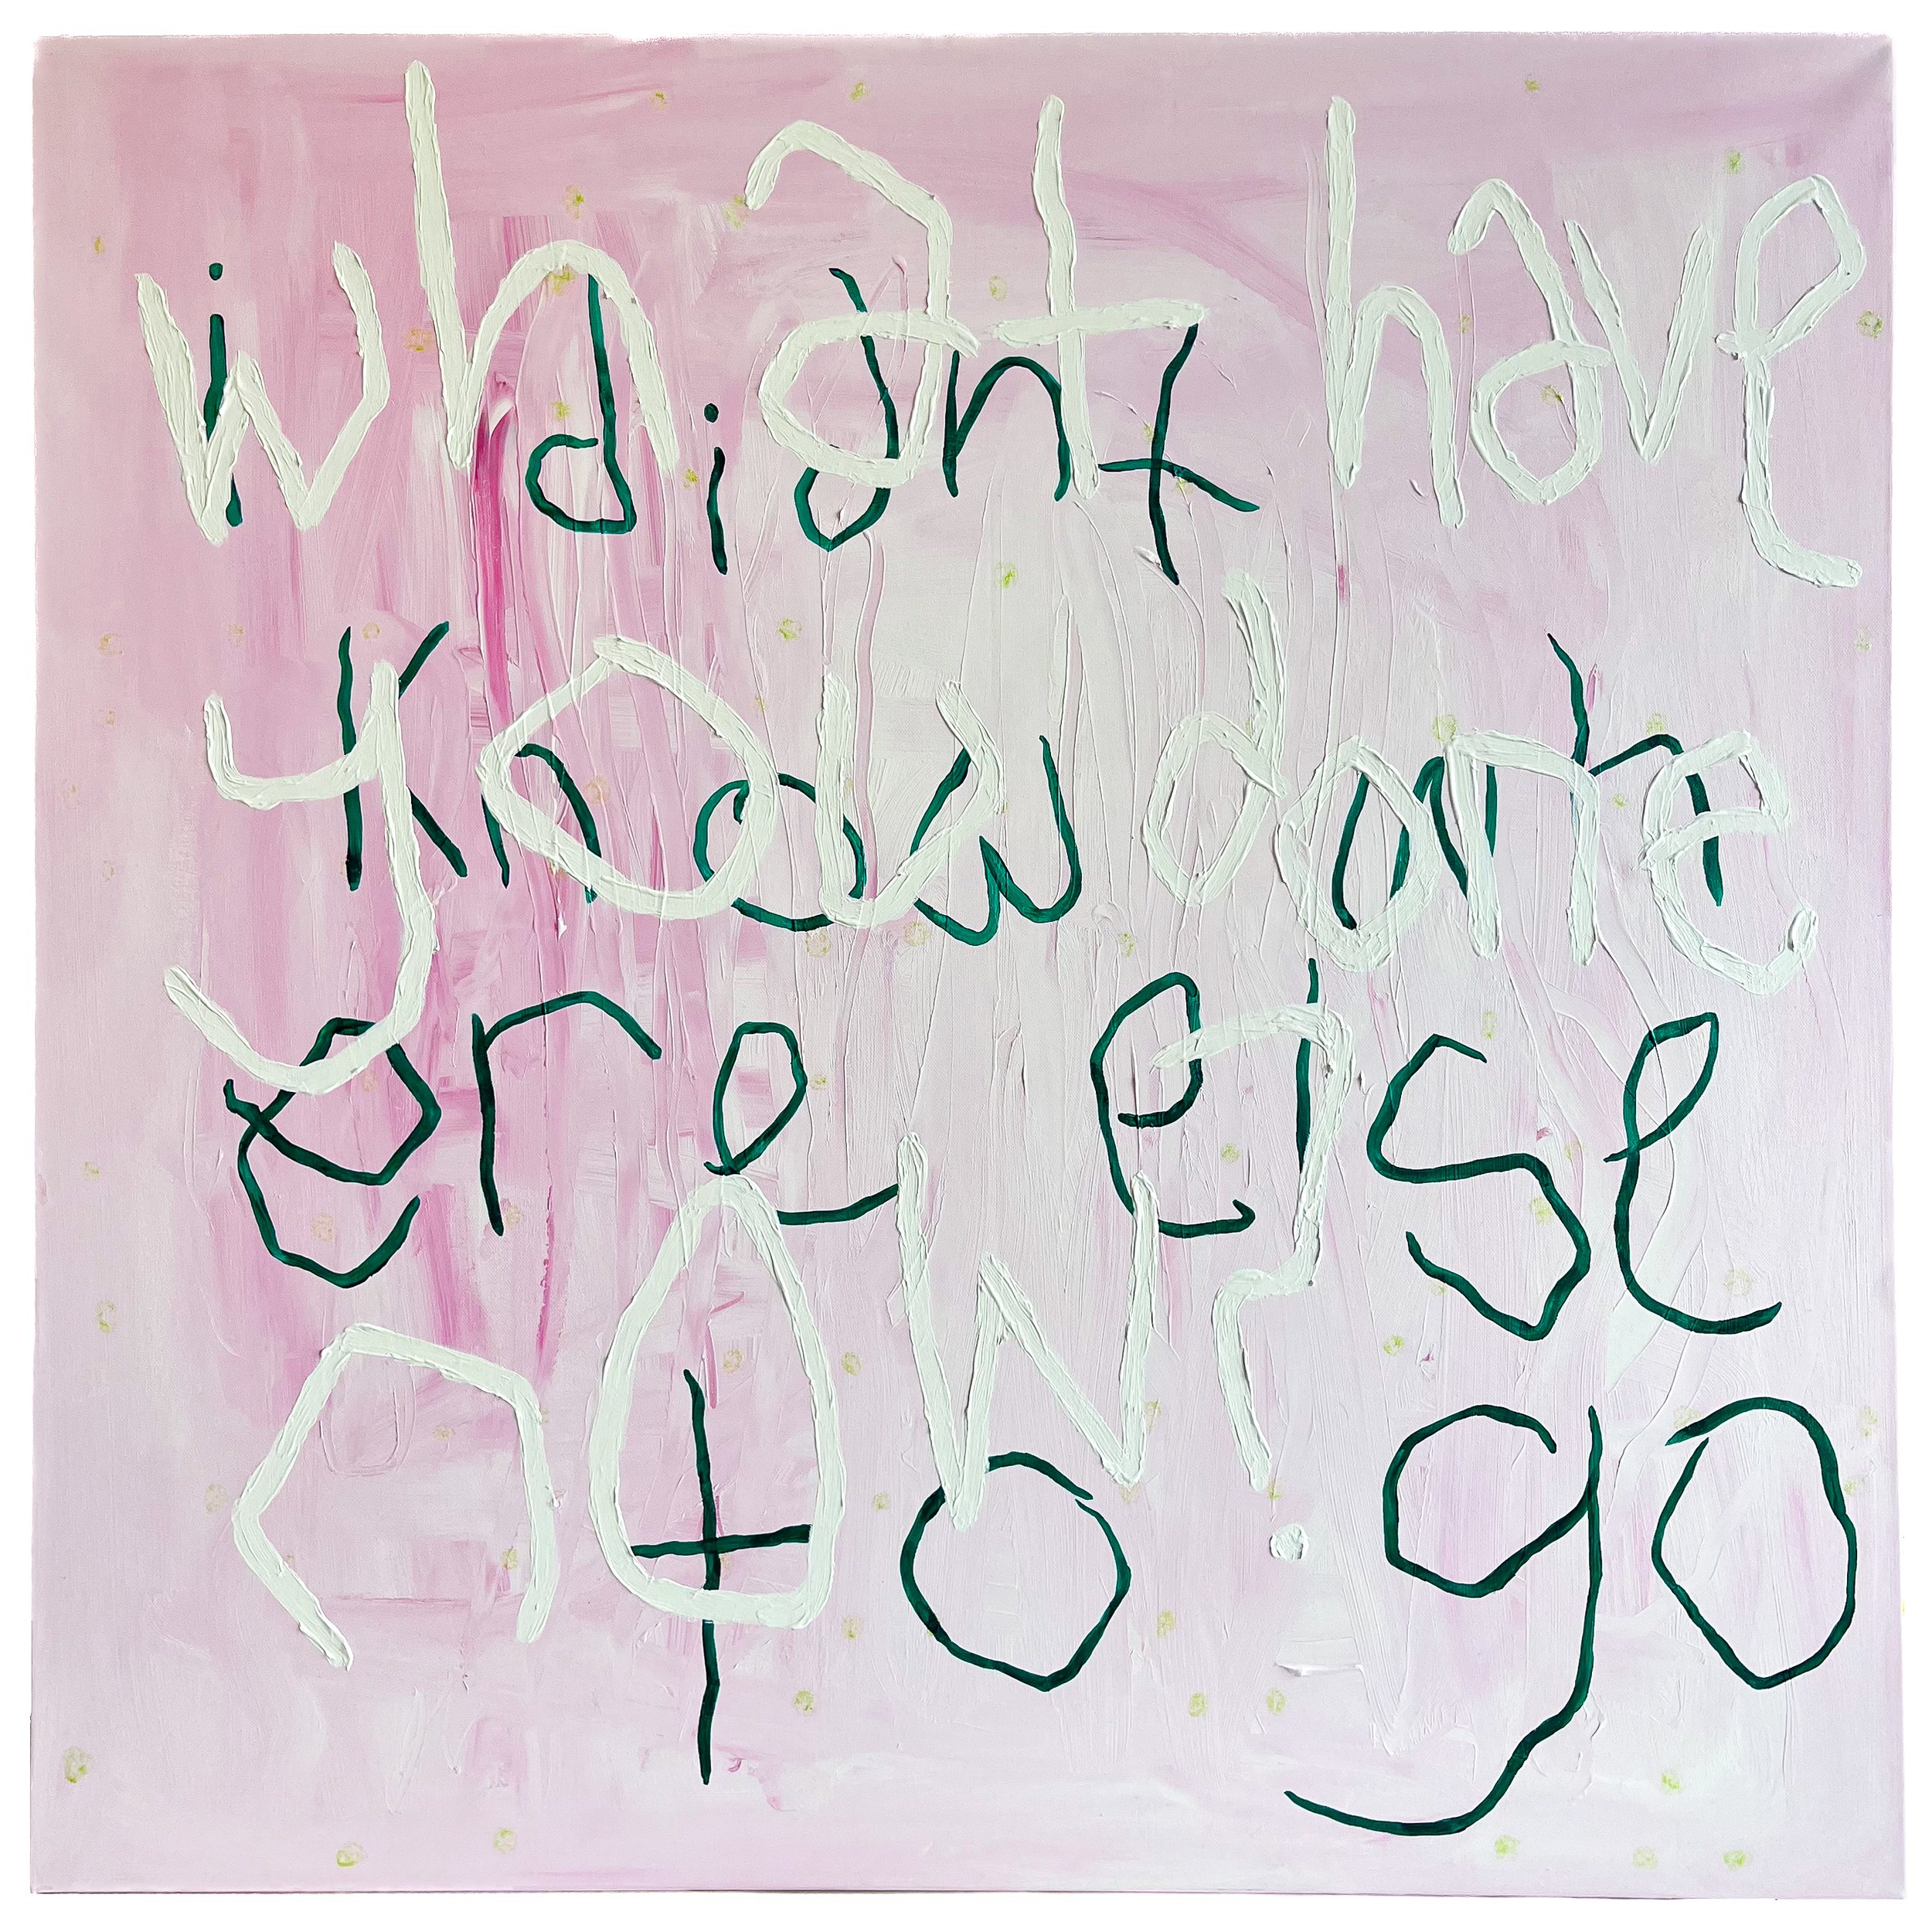 what have
you done
now?
i didnt
know wh
ere else
to go